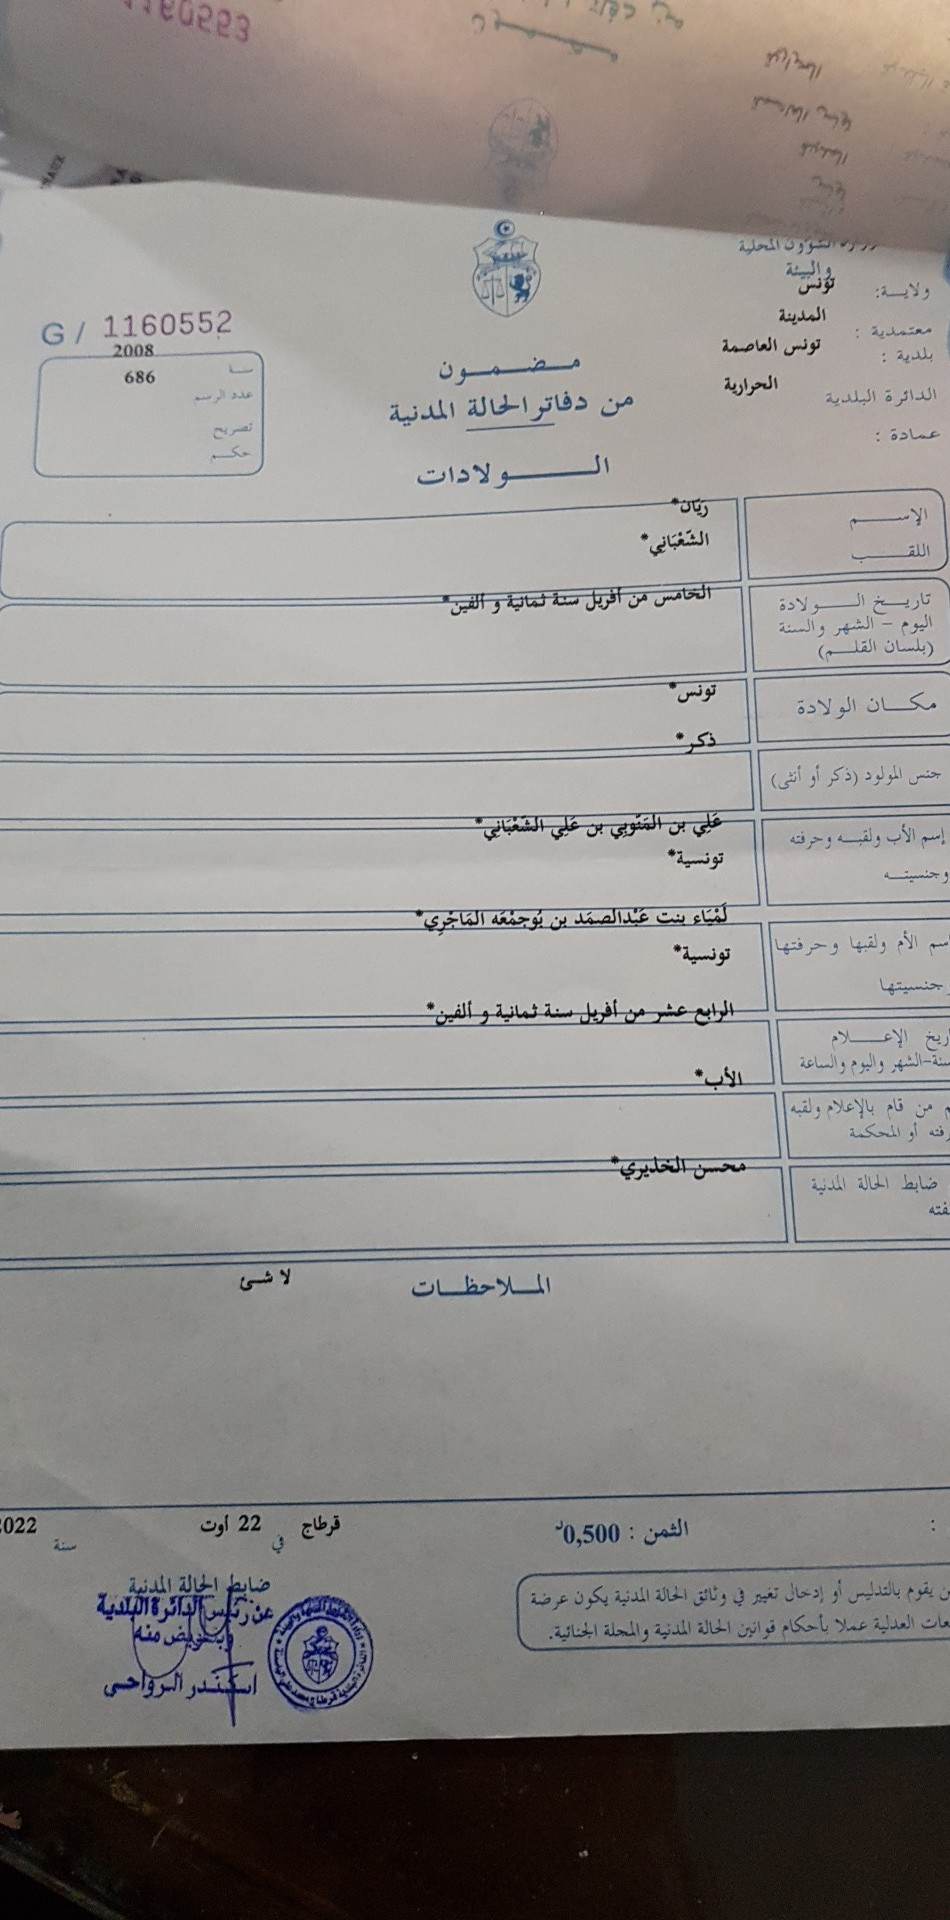 1160553
الشؤون المحلية
والبيئة
ولايـــة: تونس
معتمدية : المدينة
بلدية : تونس العاصمة
الدائرة البلدية الحرارية
عمادة :
G / 1160552
سنة 2008
عدد الرسم 686
تصريح
حكم
مضمون
من دفاتر الحالة المدنية
الولادات
الإسم رَيّان*
اللقب الشَّعْبَانِي*
تاريخ الولادة الخامس من أفريل سنة ثمانية و ألفين*
اليوم - الشهر والسنة
(بلسان القلم)
مكان الولادة تونس*
جنس المولود (ذكر أو أنثى) ذكر*
إسم الأب ولقبه وحرفته عَلِي بن المَنُّوبِي بن عَلِي الشَّعْبَانِي*
وجنسيته تونسية*
سم الأم ولقبها وحرفتها لَمْيَاء بنت عَبْدالصمَد بن بُوجمْعَه المَاجْرِي*
جنسيتها تونسية*
ريخ الإعلام الرابع عشر من أفريل سنة ثمانية و ألفين*
سنة-الشهر واليوم والساعة
م من قام بالإعلام ولقبه الأب*
فته أو المحكمة
ضابط الحالة المدنية محسن الخذيري*
فته
الملاحظات لا شئ
قرطاج في 22 أوت سنة 2022
الثمن : 0,500د
ضابط الحالة المدنية
عن رئيس الدائرة البلدية
وبتفويض منه
اسكندر الرواحي
ن يقوم بالتدليس أو إدخال تغيير في وثائق الحالة المدنية يكون عرضة
عات العدلية عملا بأحكام قوانين الحالة المدنية والمجلة الجنائية.